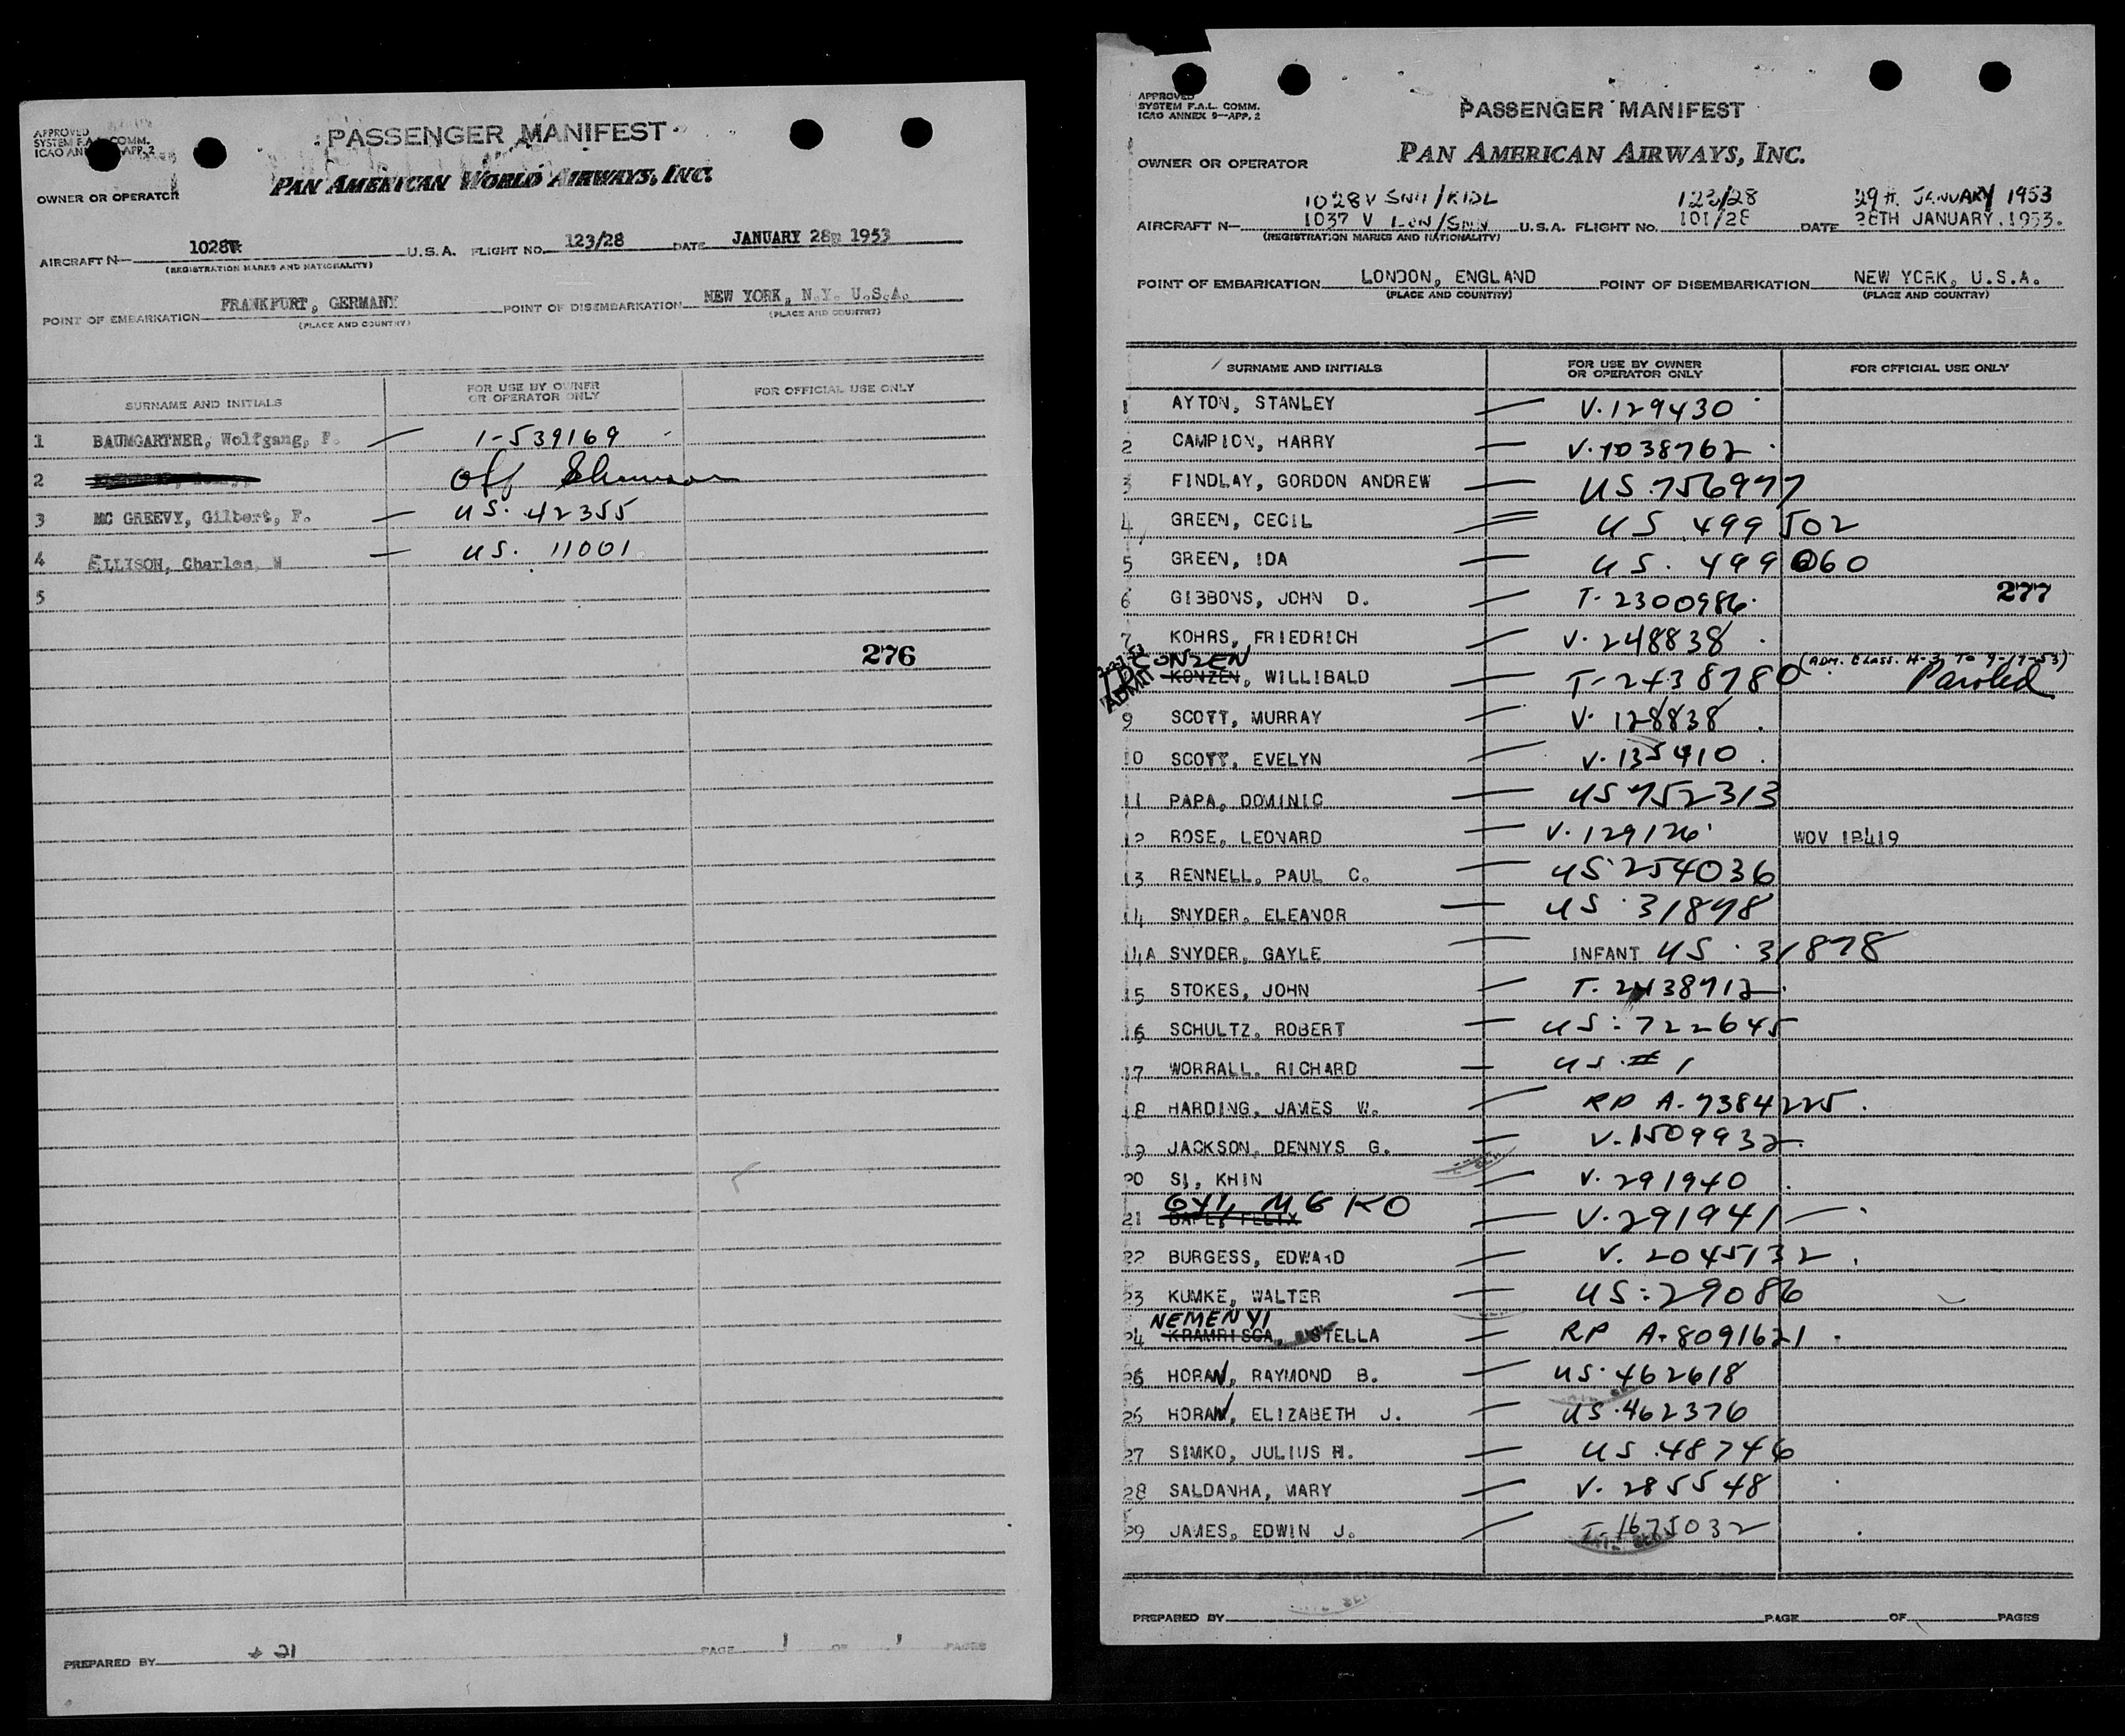 APPROVED
SYSTEM F.A.L. COMM.
ICAO ANNEX 9—APP. 2
PASSENGER MANIFEST
PAN AMERICAN WORLD AIRWAYS, INC.
OWNER OR OPERATOR
AIRCRAFT N— 1028V U.S.A. FLIGHT NO. 123/28 DATE JANUARY 28 1953
(REGISTRATION MARKS AND NATIONALITY)
POINT OF EMBARKATION FRANKFURT, GERMANY POINT OF DISEMBARKATION NEW YORK, N.Y. U.S.A.
(PLACE AND COUNTRY) (PLACE AND COUNTRY)
SURNAME AND INITIALS FOR USE BY OWNER OR OPERATOR ONLY FOR OFFICIAL USE ONLY
1 BAUMGARTNER, Wolfgang, F. — 1-539169
2 Off Shannon
3 MC GREEVY, Gilbert, F. — US. 42355
4 ELLISON, Charles, W — US. 11001
5
276
PREPARED BY + 21 PAGE 1 OF 1 PAGES
APPROVED
SYSTEM F.A.L. COMM.
ICAO ANNEX 9—APP. 2
PASSENGER MANIFEST
PAN AMERICAN AIRWAYS, INC.
OWNER OR OPERATOR
1028V SNN/KIDL 123/28 29TH JANUARY 1953
AIRCRAFT N— 1037 V LON/SNN U.S.A. FLIGHT NO. 101/28 DATE 28TH JANUARY.1953.
(REGISTRATION MARKS AND NATIONALITY)
POINT OF EMBARKATION LONDON, ENGLAND POINT OF DISEMBARKATION NEW YORK, U.S.A.
(PLACE AND COUNTRY) (PLACE AND COUNTRY)
SURNAME AND INITIALS FOR USE BY OWNER OR OPERATOR ONLY FOR OFFICIAL USE ONLY
1 AYTON, STANLEY — V.129430
2 CAMPION, HARRY — V.1038762
3 FINDLAY, GORDON ANDREW — US.756977
4 GREEN, CECIL — US 499502
5 GREEN, IDA — US. 499060
277
6 GIBBONS, JOHN D. — T-2300986
7 KOHRS, FRIEDRICH — V-248838
CONZEN (ADM. CLASS. H-3 TO 9-17-53)
ADMIT KONZEN, WILLIBALD T-2438780 Paroled
9 SCOTT, MURRAY — V-128838
10 SCOTT, EVELYN — V.135410
11 PAPA, DOMINIC — US752313
12 ROSE, LEONARD — V.129126 WOV 1B419
13 RENNELL, PAUL C. — US254036
14 SNYDER, ELEANOR — US 31878
14A SNYDER, GAYLE — INFANT US 31878
15 STOKES, JOHN — T. 2438712
16 SCHULTZ, ROBERT — US: 722645
17 WORRALL, RICHARD — US # 1
18 HARDING, JAMES W. — RP A-7384225.
19 JACKSON, DENNYS G. — V-1509932
20 SI, KHIN — V. 291940
GYI, MG KO
21 BAPE, FELIX — V.291941
22 BURGESS, EDWARD — V. 2045132
23 KUMKE, WALTER — US:29086
NEMENYI
24 KRAMRISCA, STELLA — RP A-8091621
25 HORAN, RAYMOND B. — US.462618
26 HORAN, ELIZABETH J. — US.462376
27 SIMKO, JULIUS H. — US.48746
28 SALDANHA, MARY — V. 285548
29 JAMES, EDWIN J. — T-1675032
PREPARED BY PAGE OF PAGES